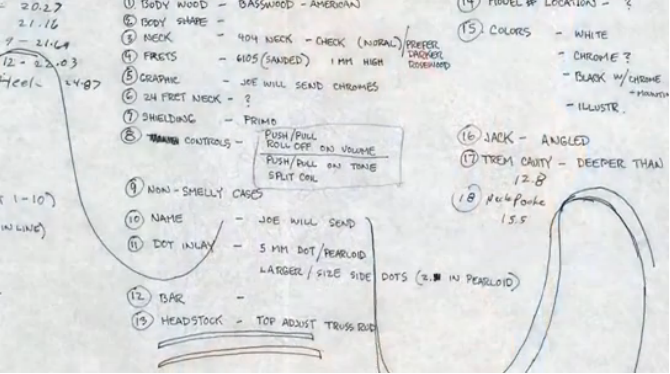 20.27
21.16
9 - 21.69
12 - 22.03
Heel - 24.87
1-10")
IN LINE)
① BODY WOOD - BASSWOOD - AMERICAN
② BODY SHAPE -
③ NECK - 404 NECK - CHECK (MORAL) / PREFER
DARKER
ROSEWOOD
④ FRETS - 6105 (SANDED) 1 MM HIGH
⑤ GRAPHIC - JOE WILL SEND CHROMES
⑥ 24 FRET NECK - ?
⑦ SHIELDING - PRIMO
⑧ CONTROLS - PUSH/PULL
ROLL OFF ON VOLUME
PUSH/PULL ON TONE
SPLIT COIL
⑨ NON-SMELLY CASES
⑩ NAME - JOE WILL SEND
⑪ DOT INLAY - 5 MM DOT/PEARLOID
LARGER / SIZE SIDE DOTS (IN PEARLOID)
⑫ BAR -
⑬ HEADSTOCK - TOP ADJUST TRUSS ROD
⑭ MODEL # LOCATION - ?
⑮ COLORS - WHITE
- CHROME ?
- BLACK W/CHROME
- ILLUSTR.
⑯ JACK - ANGLED
⑰ TREM CAVITY - DEEPER THAN
12.8
⑱ Neck Pocket
15.5